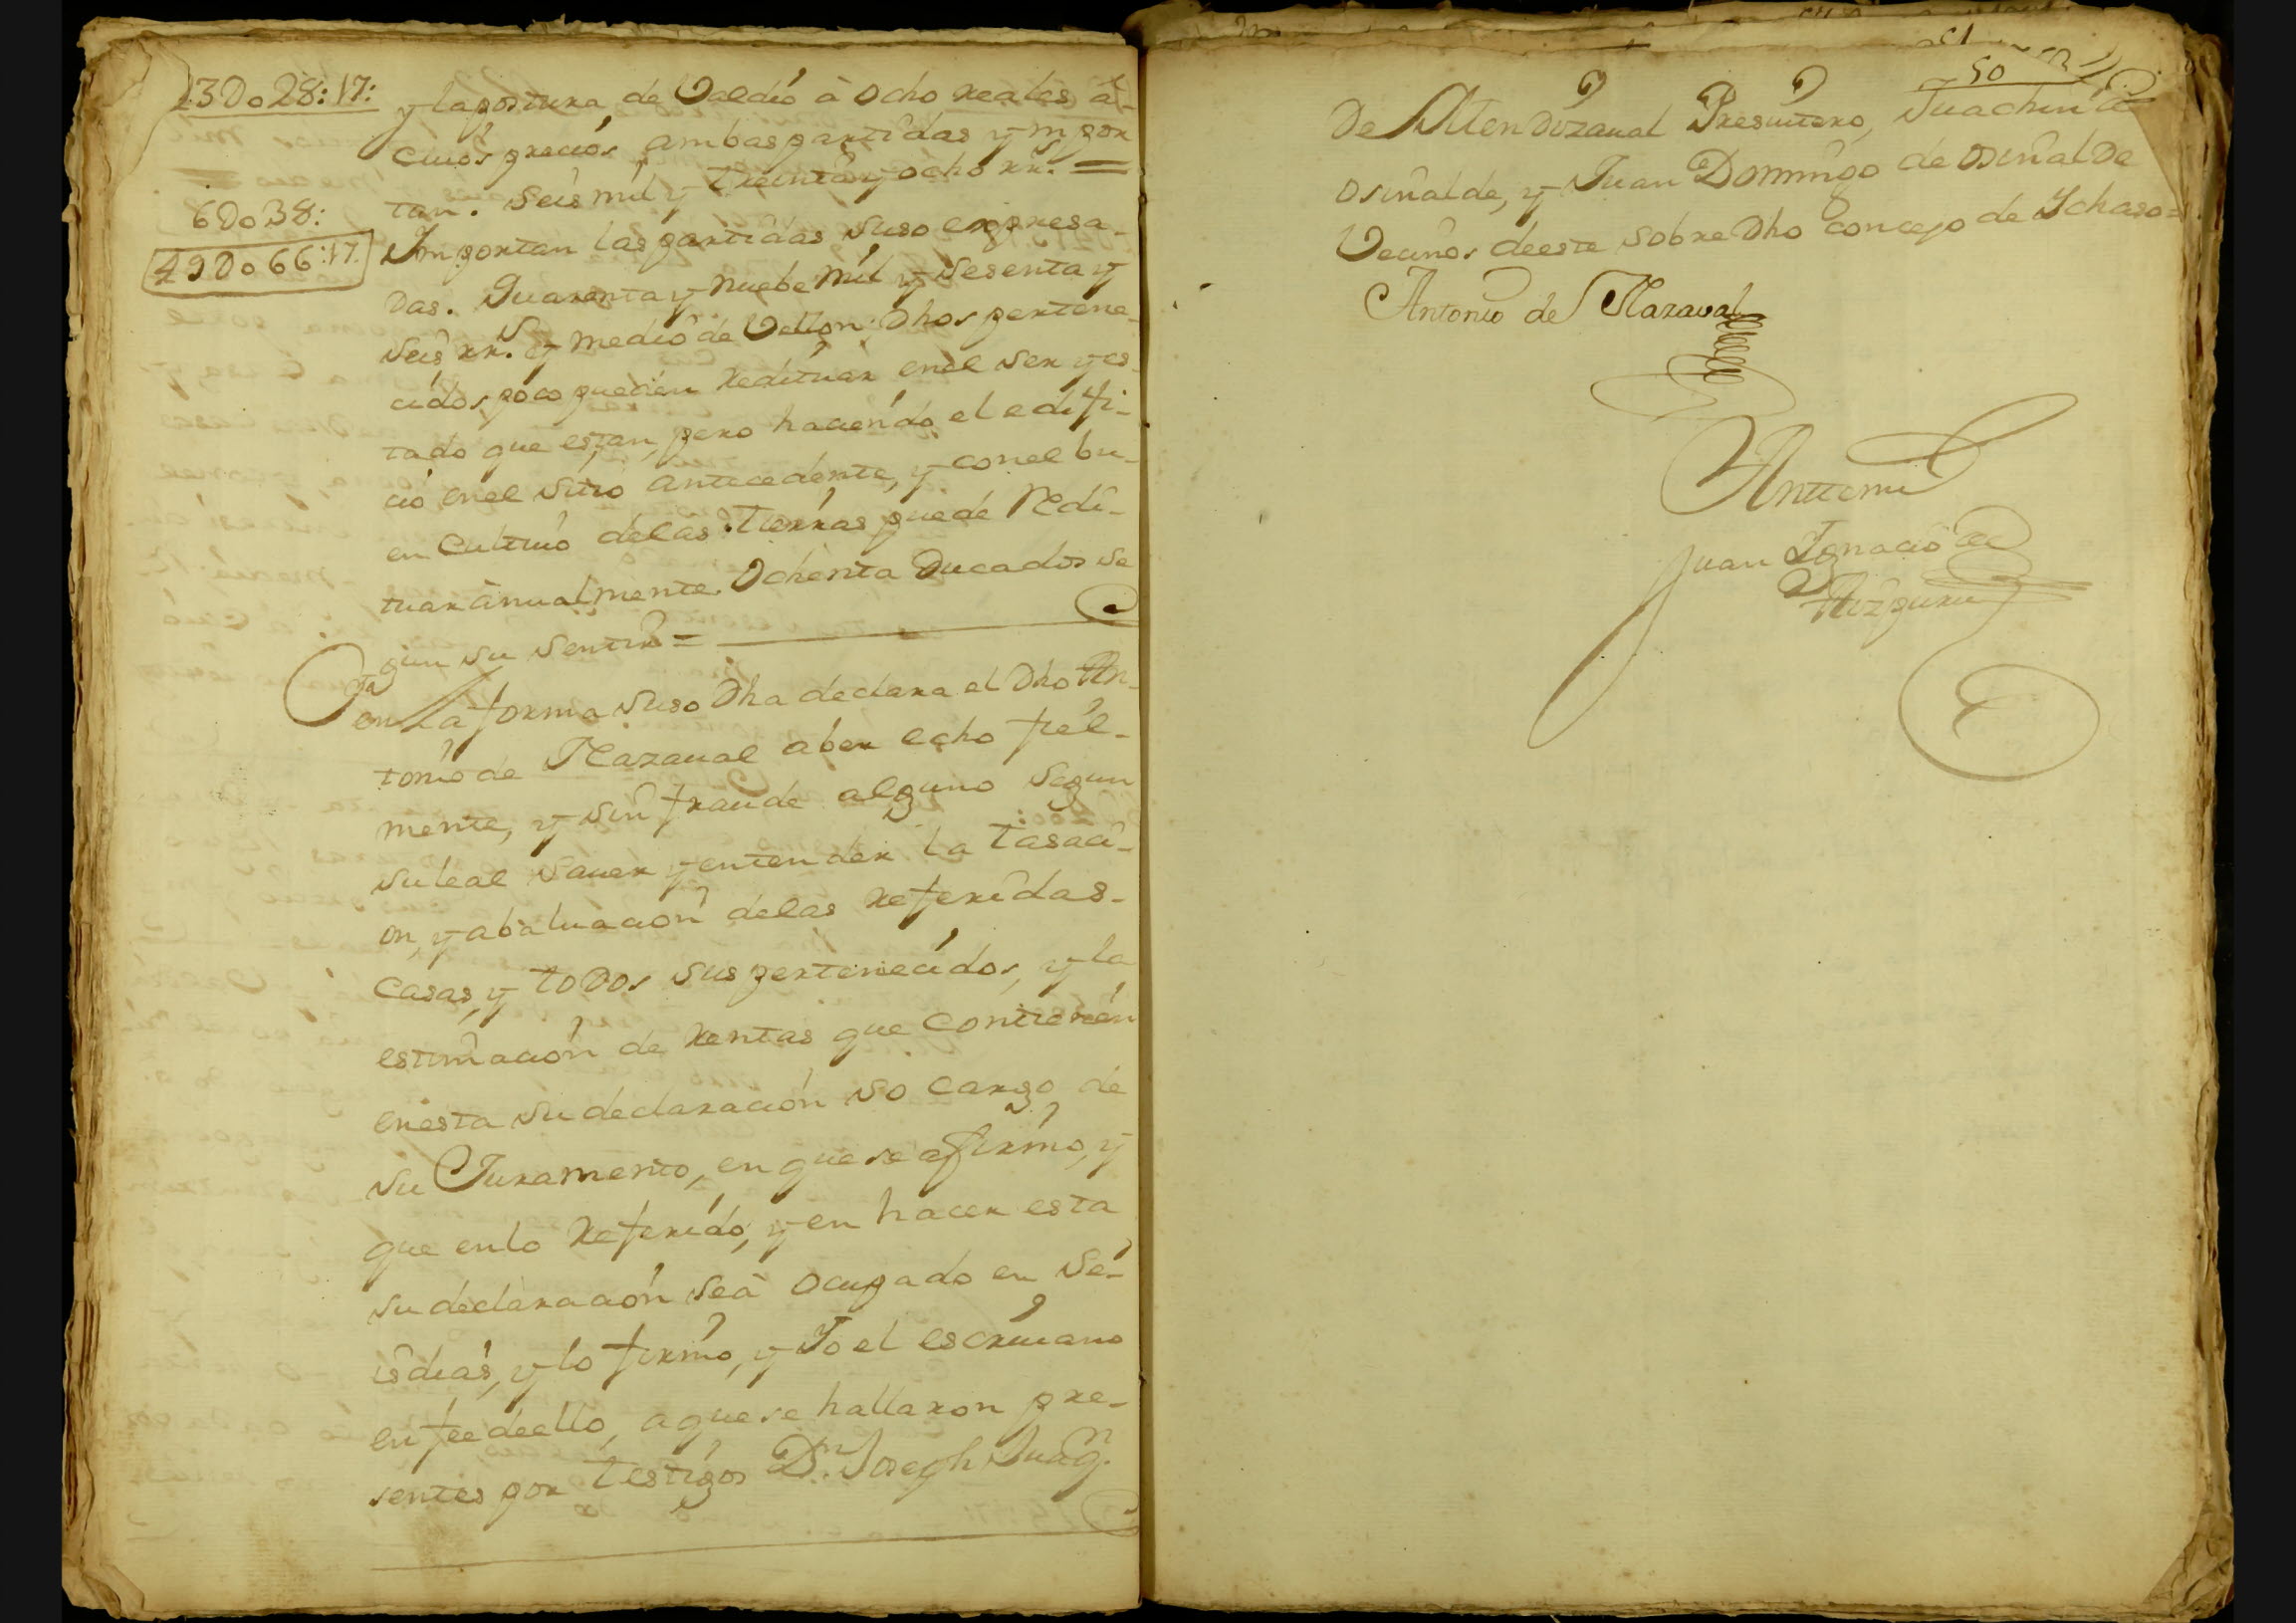 43Do28:17:
y la postura de Valdio à ocho reales a
cuios precios ambas partidas ympor
tan. Seis mil y treinta y ocho rrs. =
6Do38:
Importan las partidas suso expresa-
49Do66:17.
das. Quarenta y nuebe mil y sesenta y
seis rrs. y medio de Vellon; Dhos pertene-
cidos poco pueden redituar en el ser y es-
tado que estan, pero haciendo el edifi-
cio en el sitio antecedente, y con el bu-
en cultiuo de las tierras puede redi-
tuar anualmente Ochenta Ducados se
gun su sentir =
en la forma suso Dha declara el Dho An-
tonio de Nazaual aber echo fiel-
mente, y sin fraude alguno segun
su leal sauer y entender la tasaci-
on, y abaluacion de las referidas-
casas, y todos sus pertenecidos, y la
estimacion de rentas que contienen
en esta su declaracion so cargo de
su Juramento, en que se afirmo, y
que en lo referido, y en hacer esta
su declaracion se à ocupado en se-
is dias, y lo firmo, y Yo el escriuano
en fee de ello, a que se hallaron pre-
sentes por testigos Dn. Joseph Juaqn.
50
De Altendozaual Presuitero, Juachin de
osinalde, y Juan Domingo de osinalde
Vecinos de este sobre Dho concejo de Ychaso=
Antonio de Nazaual
Antte mi
Juan Ignacio de
Aizpuru